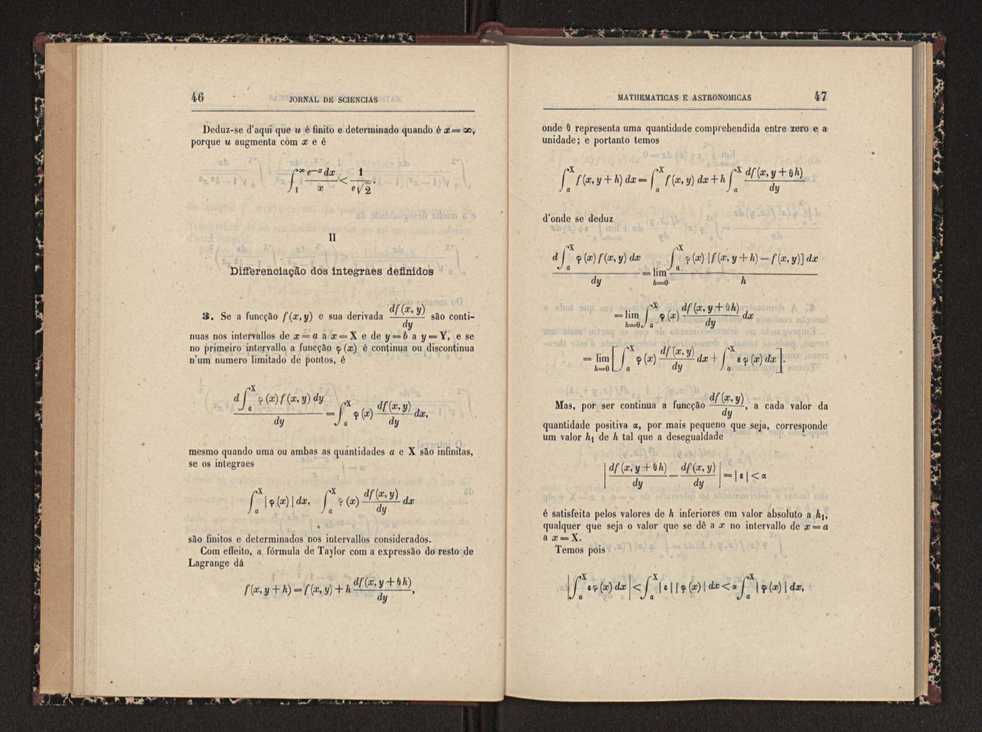 46 JORNAL DE SCIENCIAS
Deduz-se d'aqui que u é finito e determinado quando é x=∞,
porque u augmenta com x e é
∫₁^∞ e^{-x} dx / x < 1 / e√2 .
II
Differenciação dos integraes definidos
3. Se a funcção f(x, y) e sua derivada df(x, y)/dy são conti-
nuas nos intervallos de x = a a x = X e de y = b a y = Y, e se
no primeiro intervallo a funcção φ(x) é continua ou discontinua
n'um numero limitado de pontos, é
d∫_a^X φ(x) f(x, y) dy / dy = ∫_a^X φ(x) df(x, y)/dy dx,
mesmo quando uma ou ambas as quantidades a e X são infinitas,
se os integraes
∫_a^X |φ(x)| dx, ∫_a^X φ(x) df(x, y)/dy dx
são finitos e determinados nos intervallos considerados.
Com effeito, a fórmula de Taylor com a expressão do resto de
Lagrange dá
f(x, y + h) = f(x, y) + h df(x, y + θh)/dy,
MATHEMATICAS E ASTRONOMICAS 47
onde θ representa uma quantidade comprehendida entre zero e a
unidade; e portanto temos
∫_a^X f(x, y + h) dx = ∫_a^X f(x, y) dx + h∫_a^X df(x, y + θh)/dy
d'onde se deduz
d∫_a^X φ(x) f(x, y) dx / dy = lim_{h=0} ∫_a^X φ(x) [f(x, y + h) − f(x, y)] dx / h
= lim_{h=0} ∫_a^X φ(x) df(x, y + θh)/dy dx
= lim_{h=0} [∫_a^X φ(x) df(x, y)/dy dx + ∫_a^X ε φ(x) dx].
Mas, por ser continua a funcção df(x, y)/dy, a cada valor da
quantidade positiva α, por mais pequeno que seja, corresponde
um valor h₁ de h tal que a desegualdade
|df(x, y + θh)/dy − df(x, y)/dy| = |ε| < α
é satisfeita pelos valores de h inferiores em valor absoluto a h₁,
qualquer que seja o valor que se dê a x no intervallo de x = a
a x = X.
Temos pois
|∫_a^X ε φ(x) dx| < ∫_a^X |ε| |φ(x)| dx < α∫_a^X |φ(x)| dx,